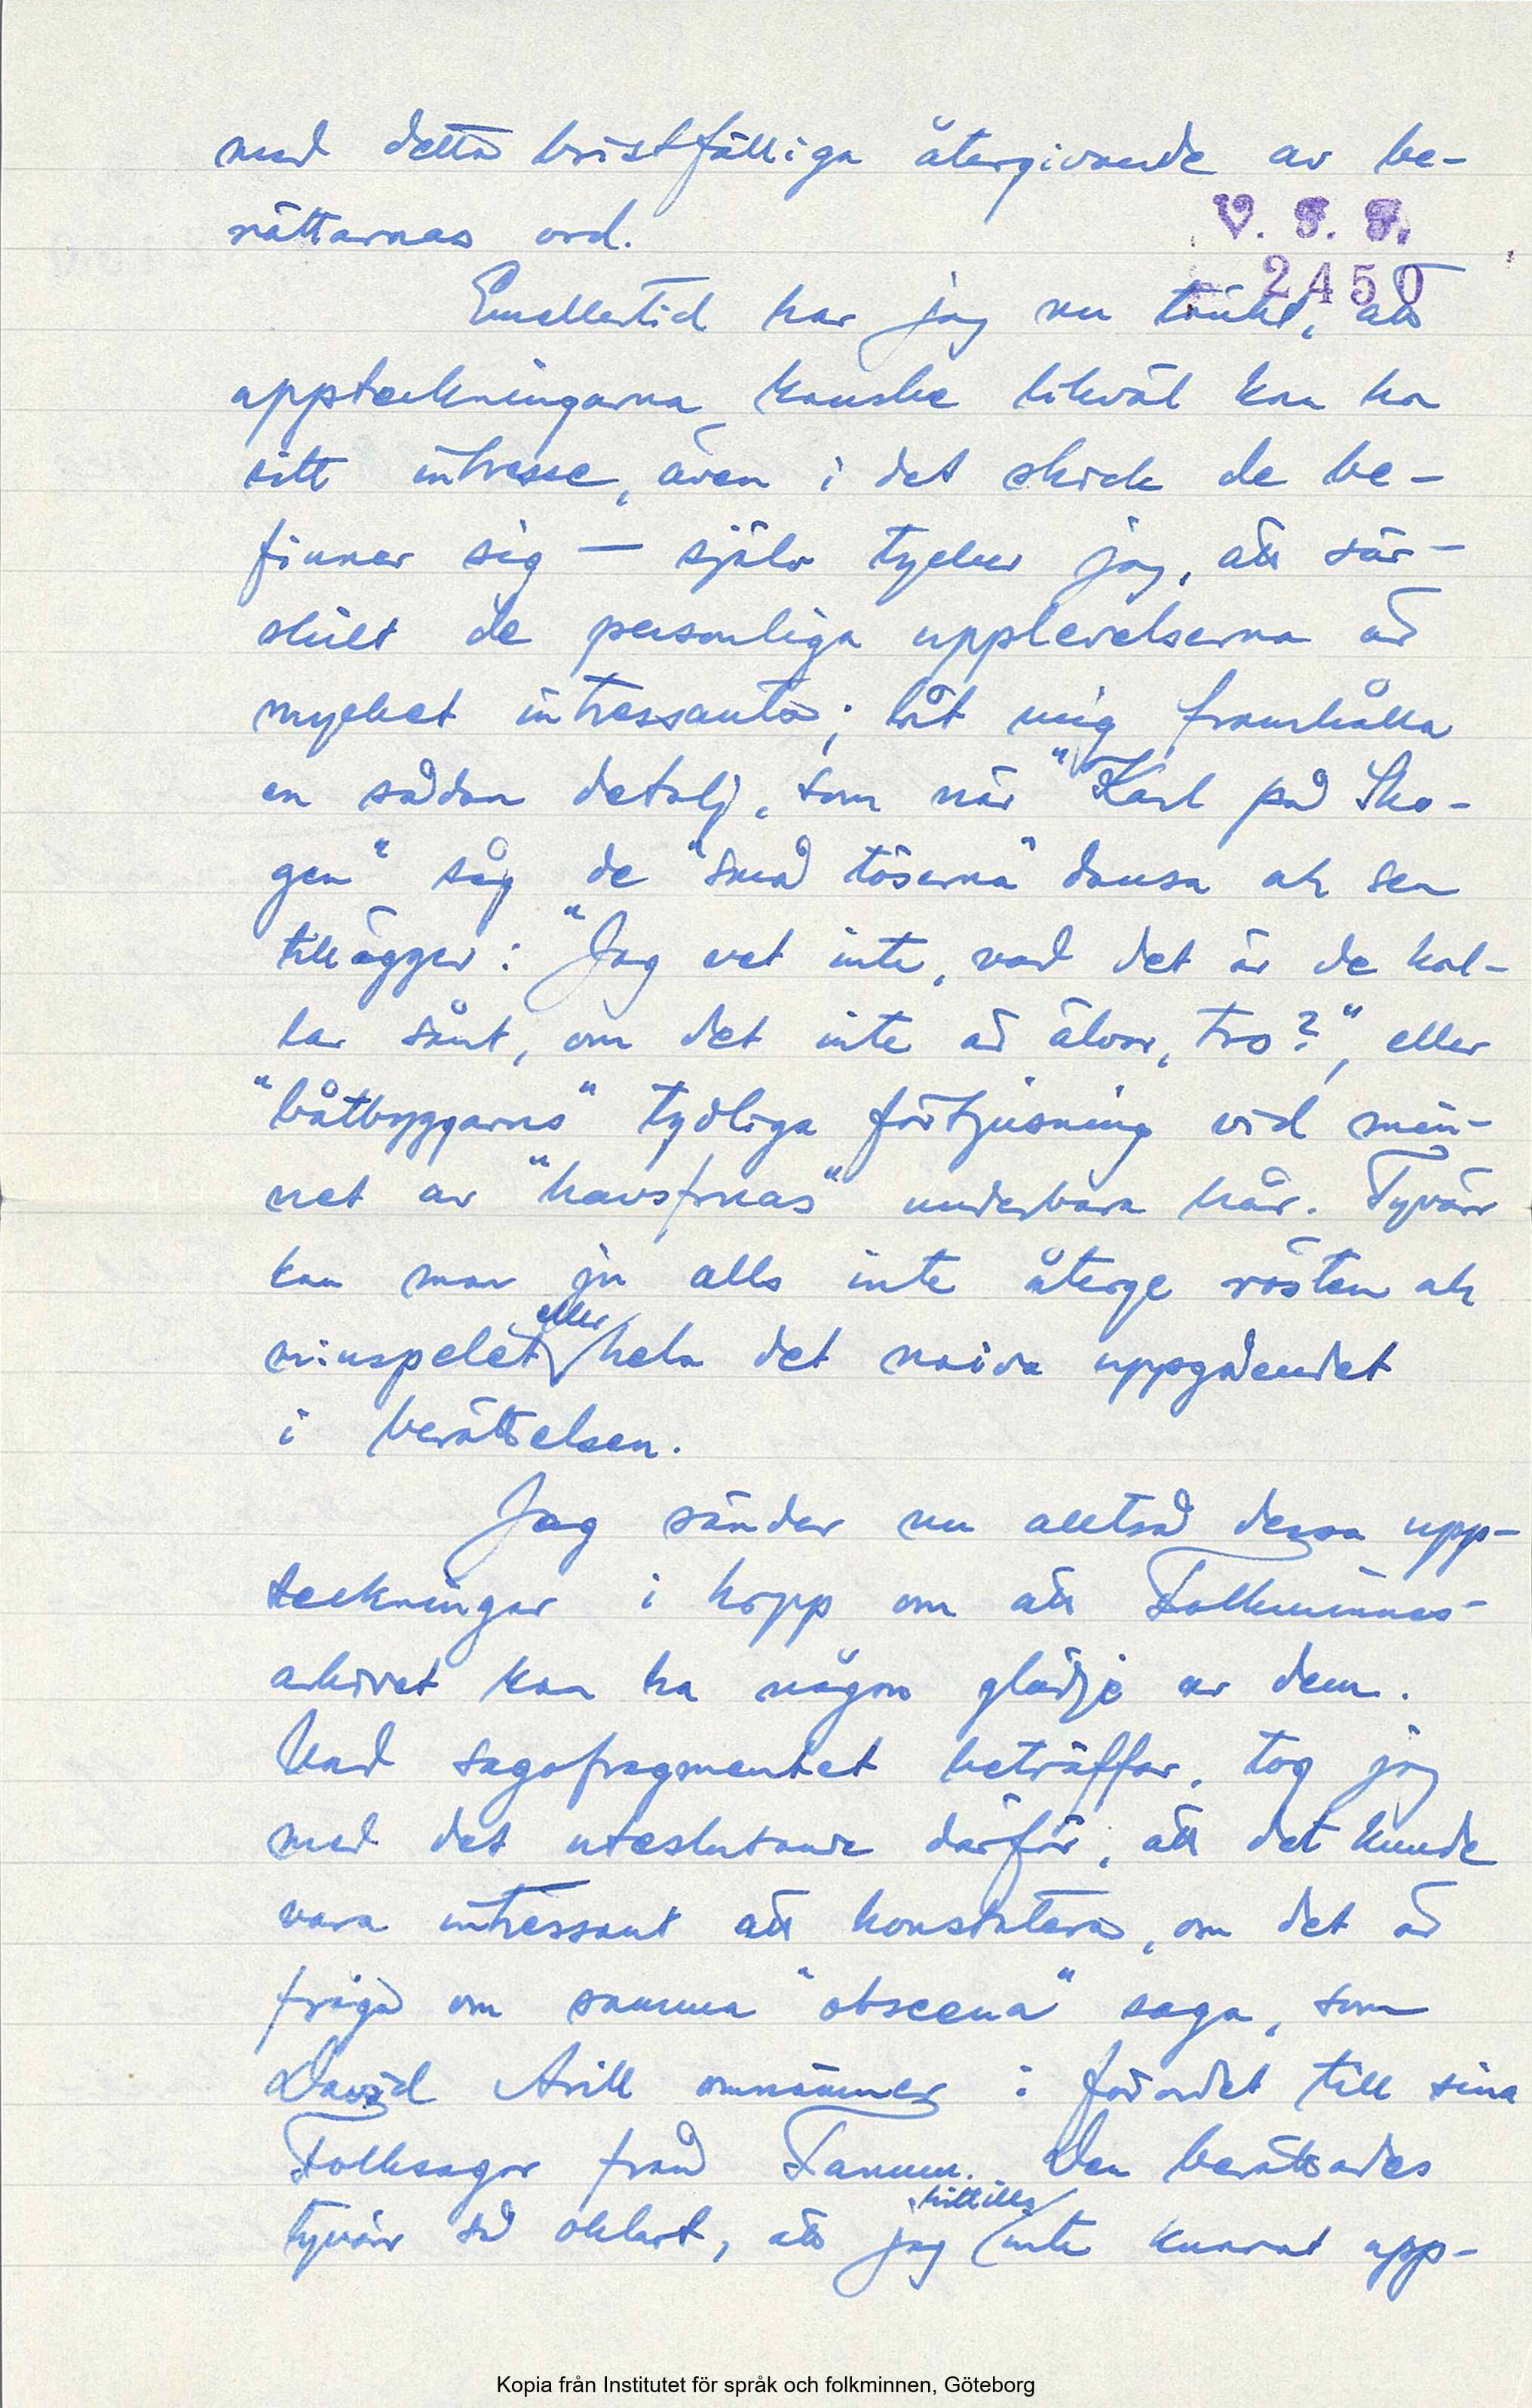 med detta bristfälliga återgivande av be-
rättarnas ord.
V. F. F.
2450
Emellertid har jag nu tänkt, att
uppteckningarna kanske likväl kan ha
sitt intresse, även i det skick de be-
finner sig — själv tycker jag, att sär-
skilt de personliga upplevelserna är
mycket intressanta; låt mig framhålla
en sådan detalj, som när "Karl på Sko-
gen" såg de "små töserna" dansa och sen
tillägger: "Jag vet inte, vad det är de kal-
lar sånt, om det inte är älvor, tro?", eller
"båtbyggarns" tydliga förtjusning vid min-
net av "havsfruas" underbara hår. Tyvärr
kan man ju alls inte återge rösten och
minspelet eller hela det naiva uppgåendet
i berättelsen.
Jag sänder nu alltså dessa upp-
teckningar i hopp om att Folkminnes-
arkivet kan ha någon glädje av dem.
Vad sagofragmentet beträffar, tog jag
med det uteslutande därför, att det kunde
vara intressant att konstatera, om det är
fråga om samma "obscena" saga, som
David Arill omnämner i förordet till sina
Folksagor från Tanum. Den berättades
tyvärr så oklart, att jag hittills inte kunnat upp-
Kopia från Institutet för språk och folkminnen, Göteborg